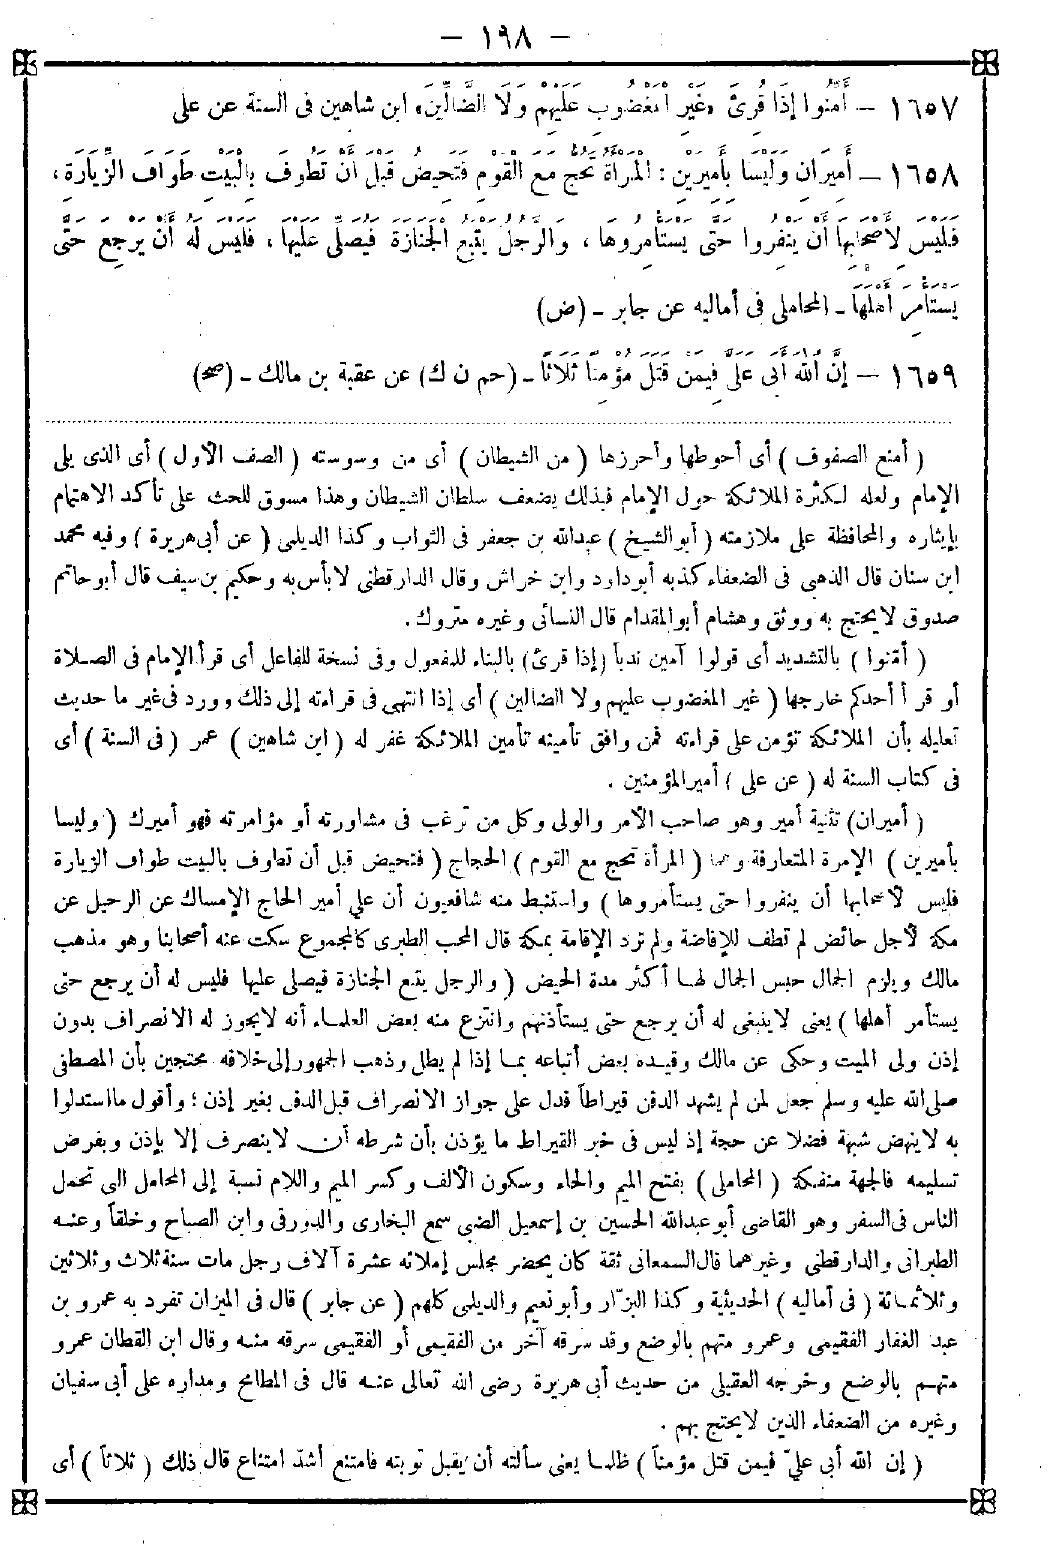 — ١٩٨ —
١٦٥٧ — أَمِّنُوا إِذَا قُرِئَ «غَيْرِ الْمَغْضُوبِ عَلَيْهِمْ وَلَا الضَّالِّينَ» ابن شاهين فى السنة عن على
١٦٥٨ — أَمِيرَانِ وَلَيْسَا بِأَمِيرَيْنِ: الْمَرْأَةُ تَحُجُّ مَعَ الْقَوْمِ فَتَحِيضُ قَبْلَ أَنْ تَطُوفَ بِالْبَيْتِ طَوَافَ الزِّيَارَةِ،
فَلَيْسَ لِأَصْحَابِهَا أَنْ يَنْفِرُوا حَتَّى يَسْتَأْمِرُوهَا، وَالرَّجُلُ يَتْبَعُ الْجَنَازَةَ فَيُصَلِّى عَلَيْهَا، فَلَيْسَ لَهُ أَنْ يَرْجِعَ حَتَّى
يَسْتَأْمِرَ أَهْلَهَا - المحاملى فى أماليه عن جابر - (ض)
١٦٥٩ — إِنَّ اللهَ أَبَى عَلَىَّ فِيمَنْ قَتَلَ مُؤْمِنًا ثَلَاثًا - (حم ن ك) عن عقبة بن مالك - (صح)
( أمنع الصفوف ) أى أحوطها وأحرزها ( من الشيطان ) أى من وسوسته ( الصف الأول ) أى الذى يلى
الإمام ولعله لكثرة الملائكة حول الإمام فبذلك يضعف سلطان الشيطان وهذا مسوق للحث على تأكد الاهتمام
بإيثاره والمحافظة على ملازمته ( أبو الشيخ ) عبدالله بن جعفر فى الثواب وكذا الديلى ( عن أبى هريرة ) وفيه محمد
ابن سنان قال الذهبى فى الضعفاء كذبه أبو داود وابن خراش وقال الدارقطنى لا بأس به وحكيم بن سيف قال أبو حاتم
صدوق لا يحتج به ووثق وهشام أبو المقدام قال النسائى وغيره متروك .
( أمّنوا ) بالتشديد أى قولوا آمين ندبا (إذا قرئ) بالبناء للمفعول وفى نسخة للفاعل أى قرأ الإمام فى الصلاة
أو قرأ أحدكم خارجها ( غير المغضوب عليهم ولا الضالين ) أى إذا انتهى فى قراءته إلى ذلك وورد فى غير ما حديث
تعليله بأن الملائكة تؤمن على قراءته فمن وافق تأمينه تأمين الملائكة غفر له ( ابن شاهين ) عمر ( فى السنة ) أى
فى كتاب السنة له ( عن على ) أمير المؤمنين .
( أميران ) تثنية أمير وهو صاحب الأمر والولى وكل من ترغب فى مشاورته أو مؤامرته فهو أميرك ( وليسا
بأميرين ) الإمرة المتعارفة وهما ( المرأة تحج مع القوم ) الحجاج ( فتحيض قبل أن تطوف بالبيت طواف الزيارة
فليس لأصحابها أن ينفروا حتى يستأمروها ) واستنبط منه شافعيون أن على أمير الحاج الإمساك عن الرحيل عن
مكة لأجل حائض لم تطف للإفاضة ولم ترد الإقامة بمكة قال المحب الطبرى كالمجموع سكت عنه أصحابنا وهو مذهب
مالك ويلزم الجمال حبس الجمال لها أكثر مدة الحيض ( والرجل يتبع الجنازة فيصلى عليها فليس له أن يرجع حتى
يستأمر أهلها ) يعنى لا ينبغى له أن يرجع حتى يستأذنهم وانتزع منه بعض العلماء أنه لا يجوز له الانصراف بدون
إذن ولى الميت وحكى عن مالك وقيده بعض أتباعه بما إذا لم يطل وذهب الجمهور إلى خلافه محتجين بأن المصطفى
صلى الله عليه وسلم جعل لمن لم يشهد الدفن قيراطاً فدل على جواز الانصراف قبل الدفن بغير إذن ؛ وأقول ما استدلوا
به لا ينهض شبهة فضلا عن حجة إذ ليس فى خبر القيراط ما يؤذن بأن شرطه أن لا ينصرف إلا بإذن وبفرض
تسليمه فالجهة منفكة ( المحاملى ) بفتح الميم والحاء وسكون الألف وكسر الميم واللام نسبة إلى المحامل التى تحمل
الناس فى السفر وهو القاضى أبو عبدالله الحسين بن إسمعيل الضبى سمع البخارى والدورقى وابن الصباح وخلقاً وعنه
الطبرانى والدارقطنى وغيرهما قال السمعانى ثقة كان يحضر مجلس إملائه عشرة آلاف رجل مات سنة ثلاث وثلاثين
وثلاثمائة ( فى أماليه ) الحديثية وكذا البزّار وأبو نعيم والديلى كلهم ( عن جابر ) قال فى الميزان تفرد به عمرو بن
عبد الغفار الفقيمى وعمرو متهم بالوضع وقد سرقه آخر من الفقيمى أو الفقيمى سرقه منه وقال ابن القطان عمرو
متهم بالوضع وخرجه العقيلى من حديث أبى هريرة رضى الله تعالى عنه قال فى المطامح ومداره على أبى سفيان
وغيره من الضعفاء الذين لا يحتج بهم .
( إن الله أبى علىّ فيمن قتل مؤمناً ) ظالما يعنى سألته أن يقبل توبته فامتنع أشدّ امتناع قال ذلك ( ثلاثاً ) أى